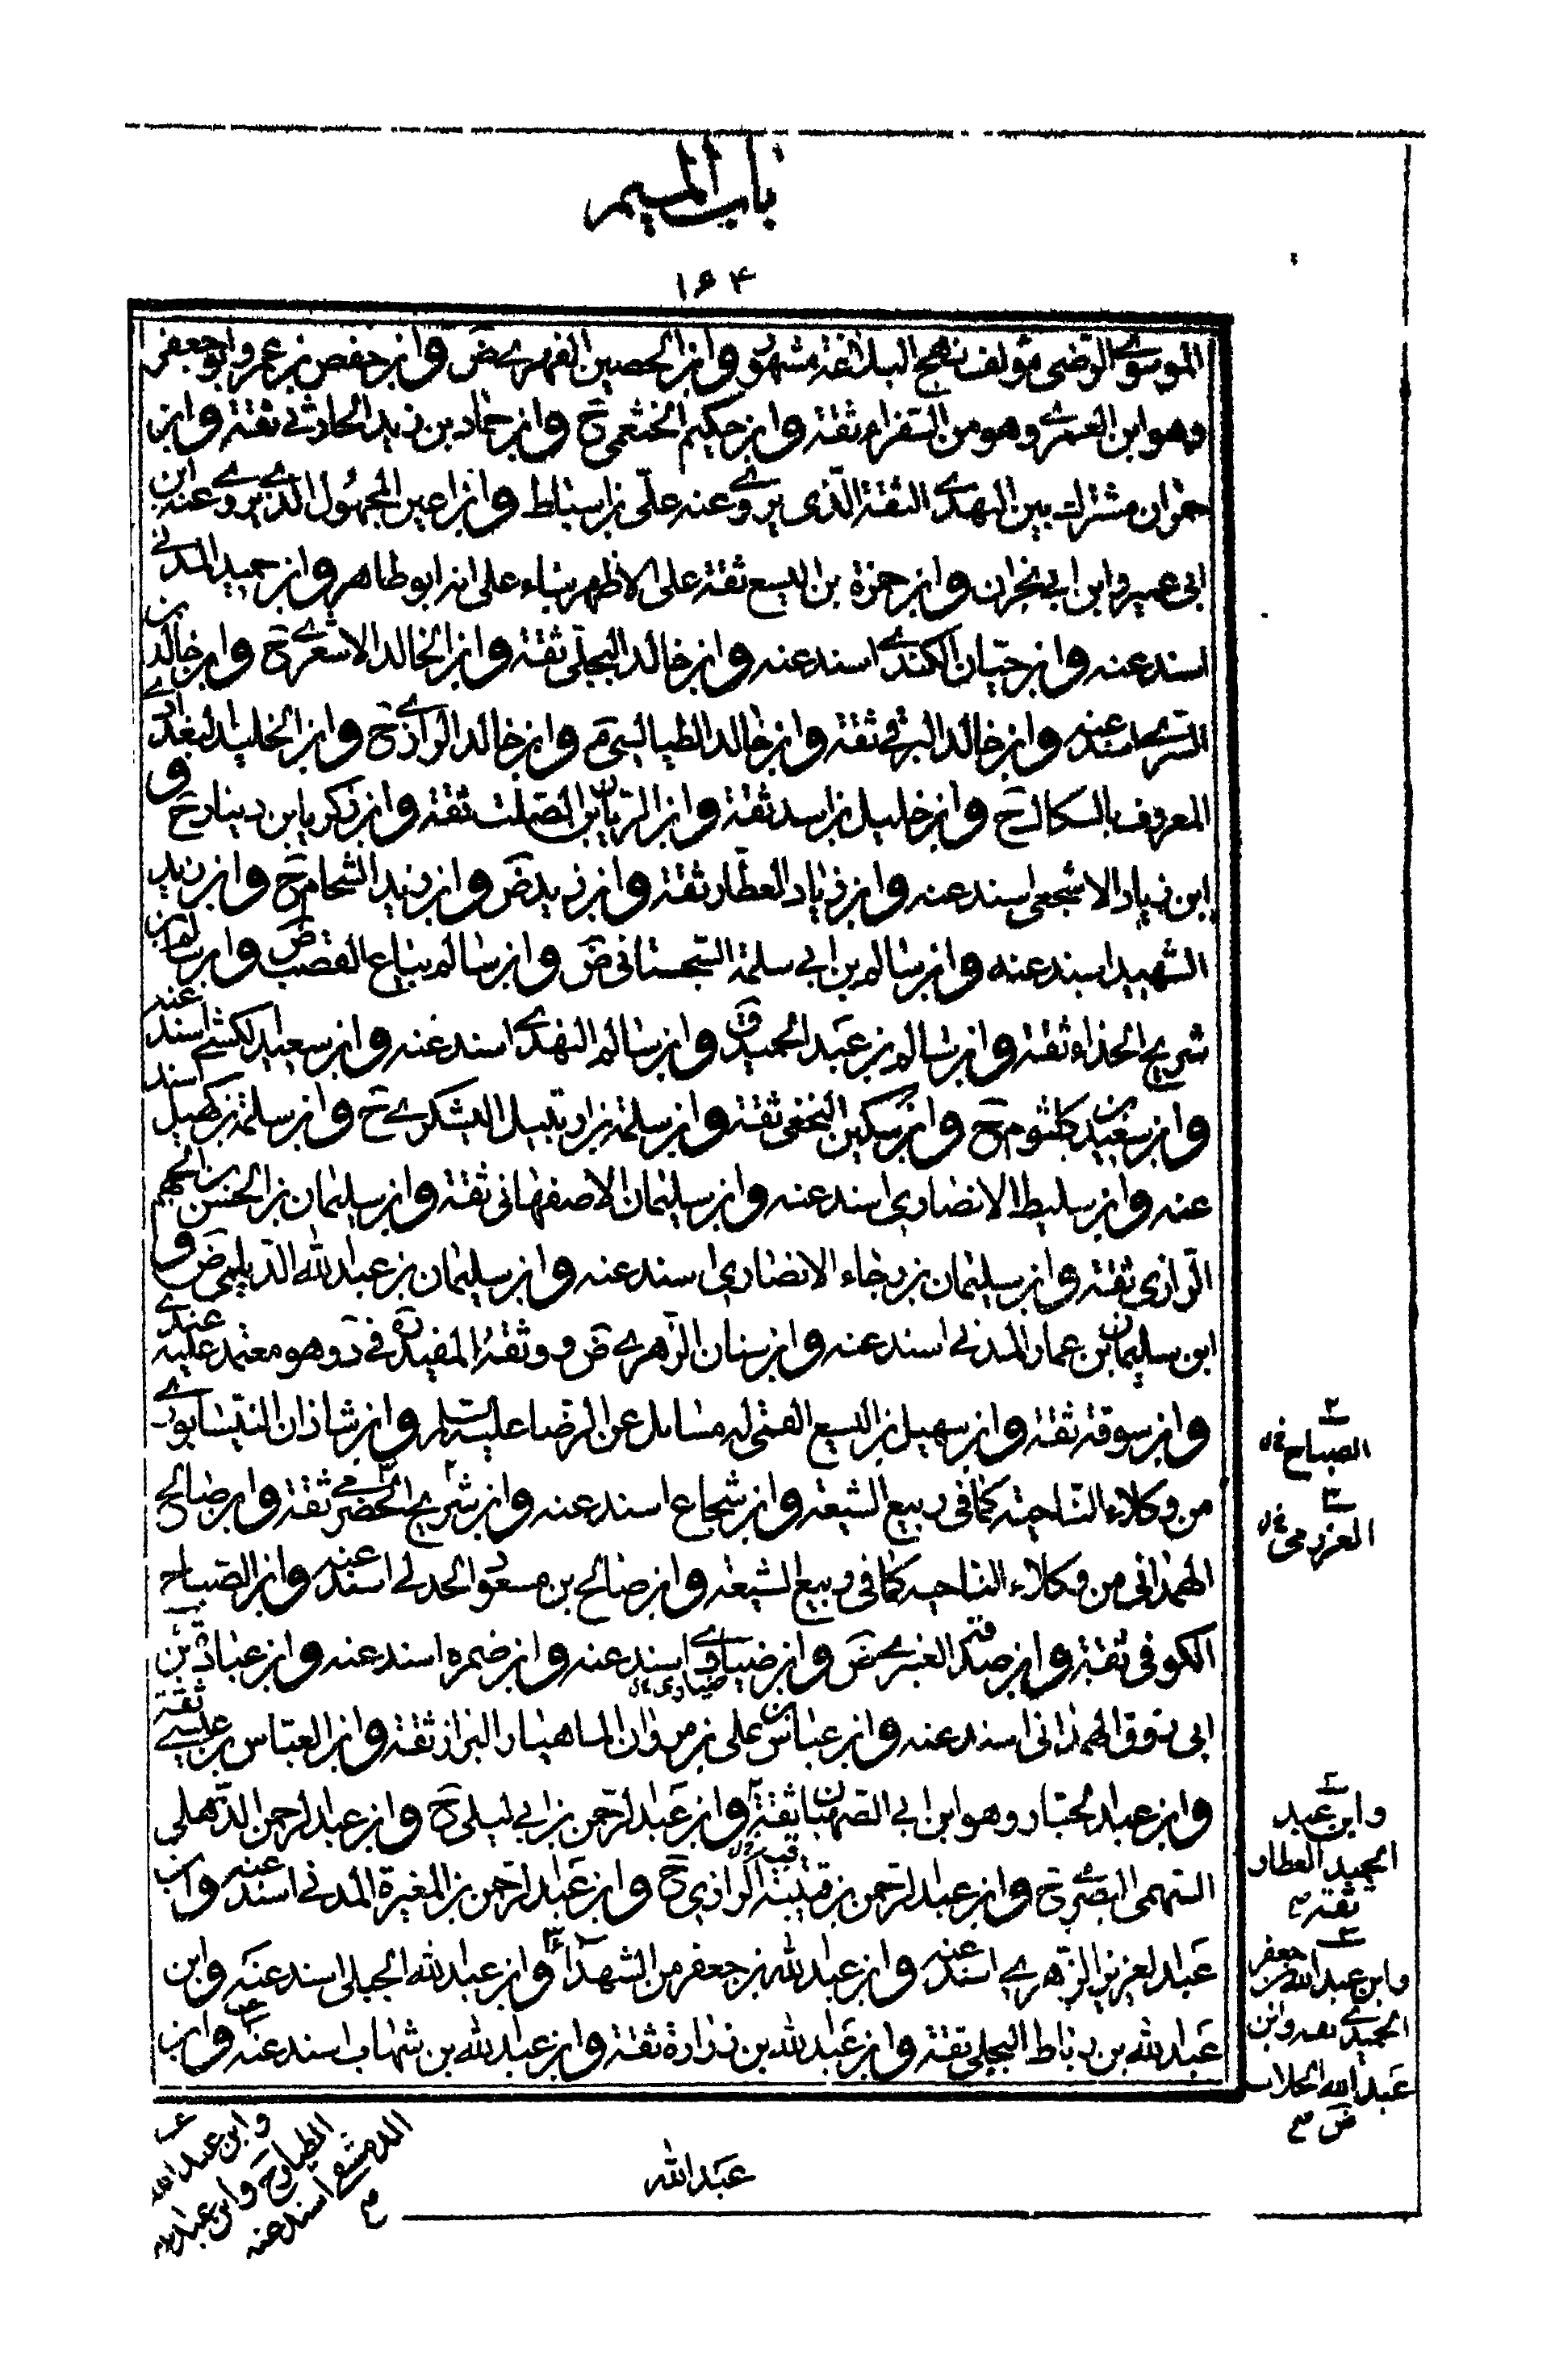 باب الميم
١٦٤
الموسوي الرضي مؤلف نهج البلاغة مشهور وابن الحصين الفهري ض وابن حفص بن عمرو ابو جعفر
وهو ابن العمري وهو من السفراء ثقة وابن حكيم الخثعمي ح وابن حماد بن زيد الحارثي ثقة وابن
حمران مشترك بين النهدي الثقة الذي يروي عنه علي بن اسباط وابن اعين المجهول الذي يروي عنه ابن
ابي عمير وابن ابي نجران وابن حمزة بن اليسع ثقة على الاظهر بناء على انه ابو طاهر وابن حميد المدني
اسند عنه وابن حيان الكندي اسند عنه وابن خالد البجلي ثقة وابن الخالد الاشعري ح وابن خالد بن
السري اسند عنه وابن خالد البرقي ثقة وابن خالد الطيالسي م وابن خالد الرازي ح وابن الخليد البغدادي
المعروف بالسكال ح وابن خليل بن اسد ثقة وابن الريان بن الصلت ثقة وابن زكريا بن دينار ح و
ابن زياد الاشجعي اسند عنه وابن زياد العطار ثقة وابن زيد ض وابن زيد الشحام ح وابن زيد
الشهيد اسند عنه وابن سالم بن ابي سلمة السجستاني ض وابن سالم بياع القصب ض وابن سالم بن
شريح الحذاء ثقة وابن سالم بن عبد الحميد ق وابن سالم النهدي اسند عنه وابن سعيد الكشي اسند عنه
وابن سعيد بن كلثوم ح وابن سكين النخعي ثقة وابن سلمة بن ارتبيل اليشكري ح وابن سلمة بن كهيل اسند
عنه وابن سليط الانصاري اسند عنه وابن سليمان الاصفهاني ثقة وابن سليمان بن الحسن بن الجهم
الرازي ثقة وابن سليمان بن رجاء الانصاري اسند عنه وابن سليمان بن عبد الله الديلمي ض و
ابن سليمان بن عمار المدني اسند عنه وابن سنان الزهري ض ووثقه المفيد ره في د وهو معتمد عليه عندي
وابن سوقة ثقة وابن سهيل بن اليسع القمي له مسائل عن الرضا عليه السلم وابن شاذان النيسابوري
من وكلاء الناحية كما في ربيع الشيعة وابن شجاع اسند عنه وابن شريح الحضرمي ثقة وابن صالح
الهمداني من وكلاء الناحية كما في ربيع الشيعة وابن صالح بن مسعود الجدلي اسند عنه وابن الصباح
الكوفي ثقة وابن صدقة العنبري ض وابن ضباوي اسند عنه وابن ضمره اسند عنه وابن عباد بن
ضياوي
ابي روق الهمداني اسند عنه وابن عباس بن علي بن مروان الماهيار البزاز ثقة وابن العباس بن عيسى ثقة
وابن عبد الجبار وهو ابن ابي الصهبان ثقة وابن عبد الرحمن بن ابي ليلى ح وابن عبد الرحمن الذهلي
السهمي البصري ح وابن عبد الرحمن بن قتيبة الرازي ح وابن عبد الرحمن بن المغيرة المدني اسند عنه وابن
عبد العزيز الزهري اسند عنه وابن عبد الله بن جعفر من الشهداء وابن عبد الله الجبلي اسند عنه وابن
عبد الله بن رباط البجلي ثقة وابن عبد الله بن زرارة ثقة وابن عبد الله بن شهاب اسند عنه وابن
الصباح
العزرمي
وابن عبد
الحميد العطار
ثقة
وابن عبد الله بن جعفر
الحميري ثقة وابن
عبد الله الجلاب
ض
وابن عبد الله
الطيار ح وابن عبد الله
الدمشقي اسند عنه
عبد الله